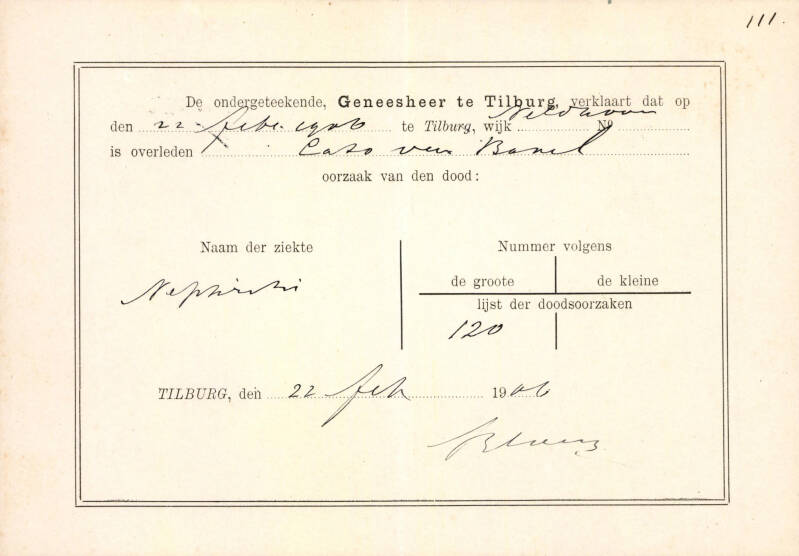 111.
De ondergeteekende, Geneesheer te Tilburg, verklaart dat op
den 22 febr. 1906 te Tilburg, wijk Veldhoven No
is overleden Cato van Boxtel
oorzaak van den dood:
Naam der ziekte
Nummer volgens
de groote de kleine
Nephritis
lijst der doodsoorzaken
120
TILBURG, den 22 feb 1906